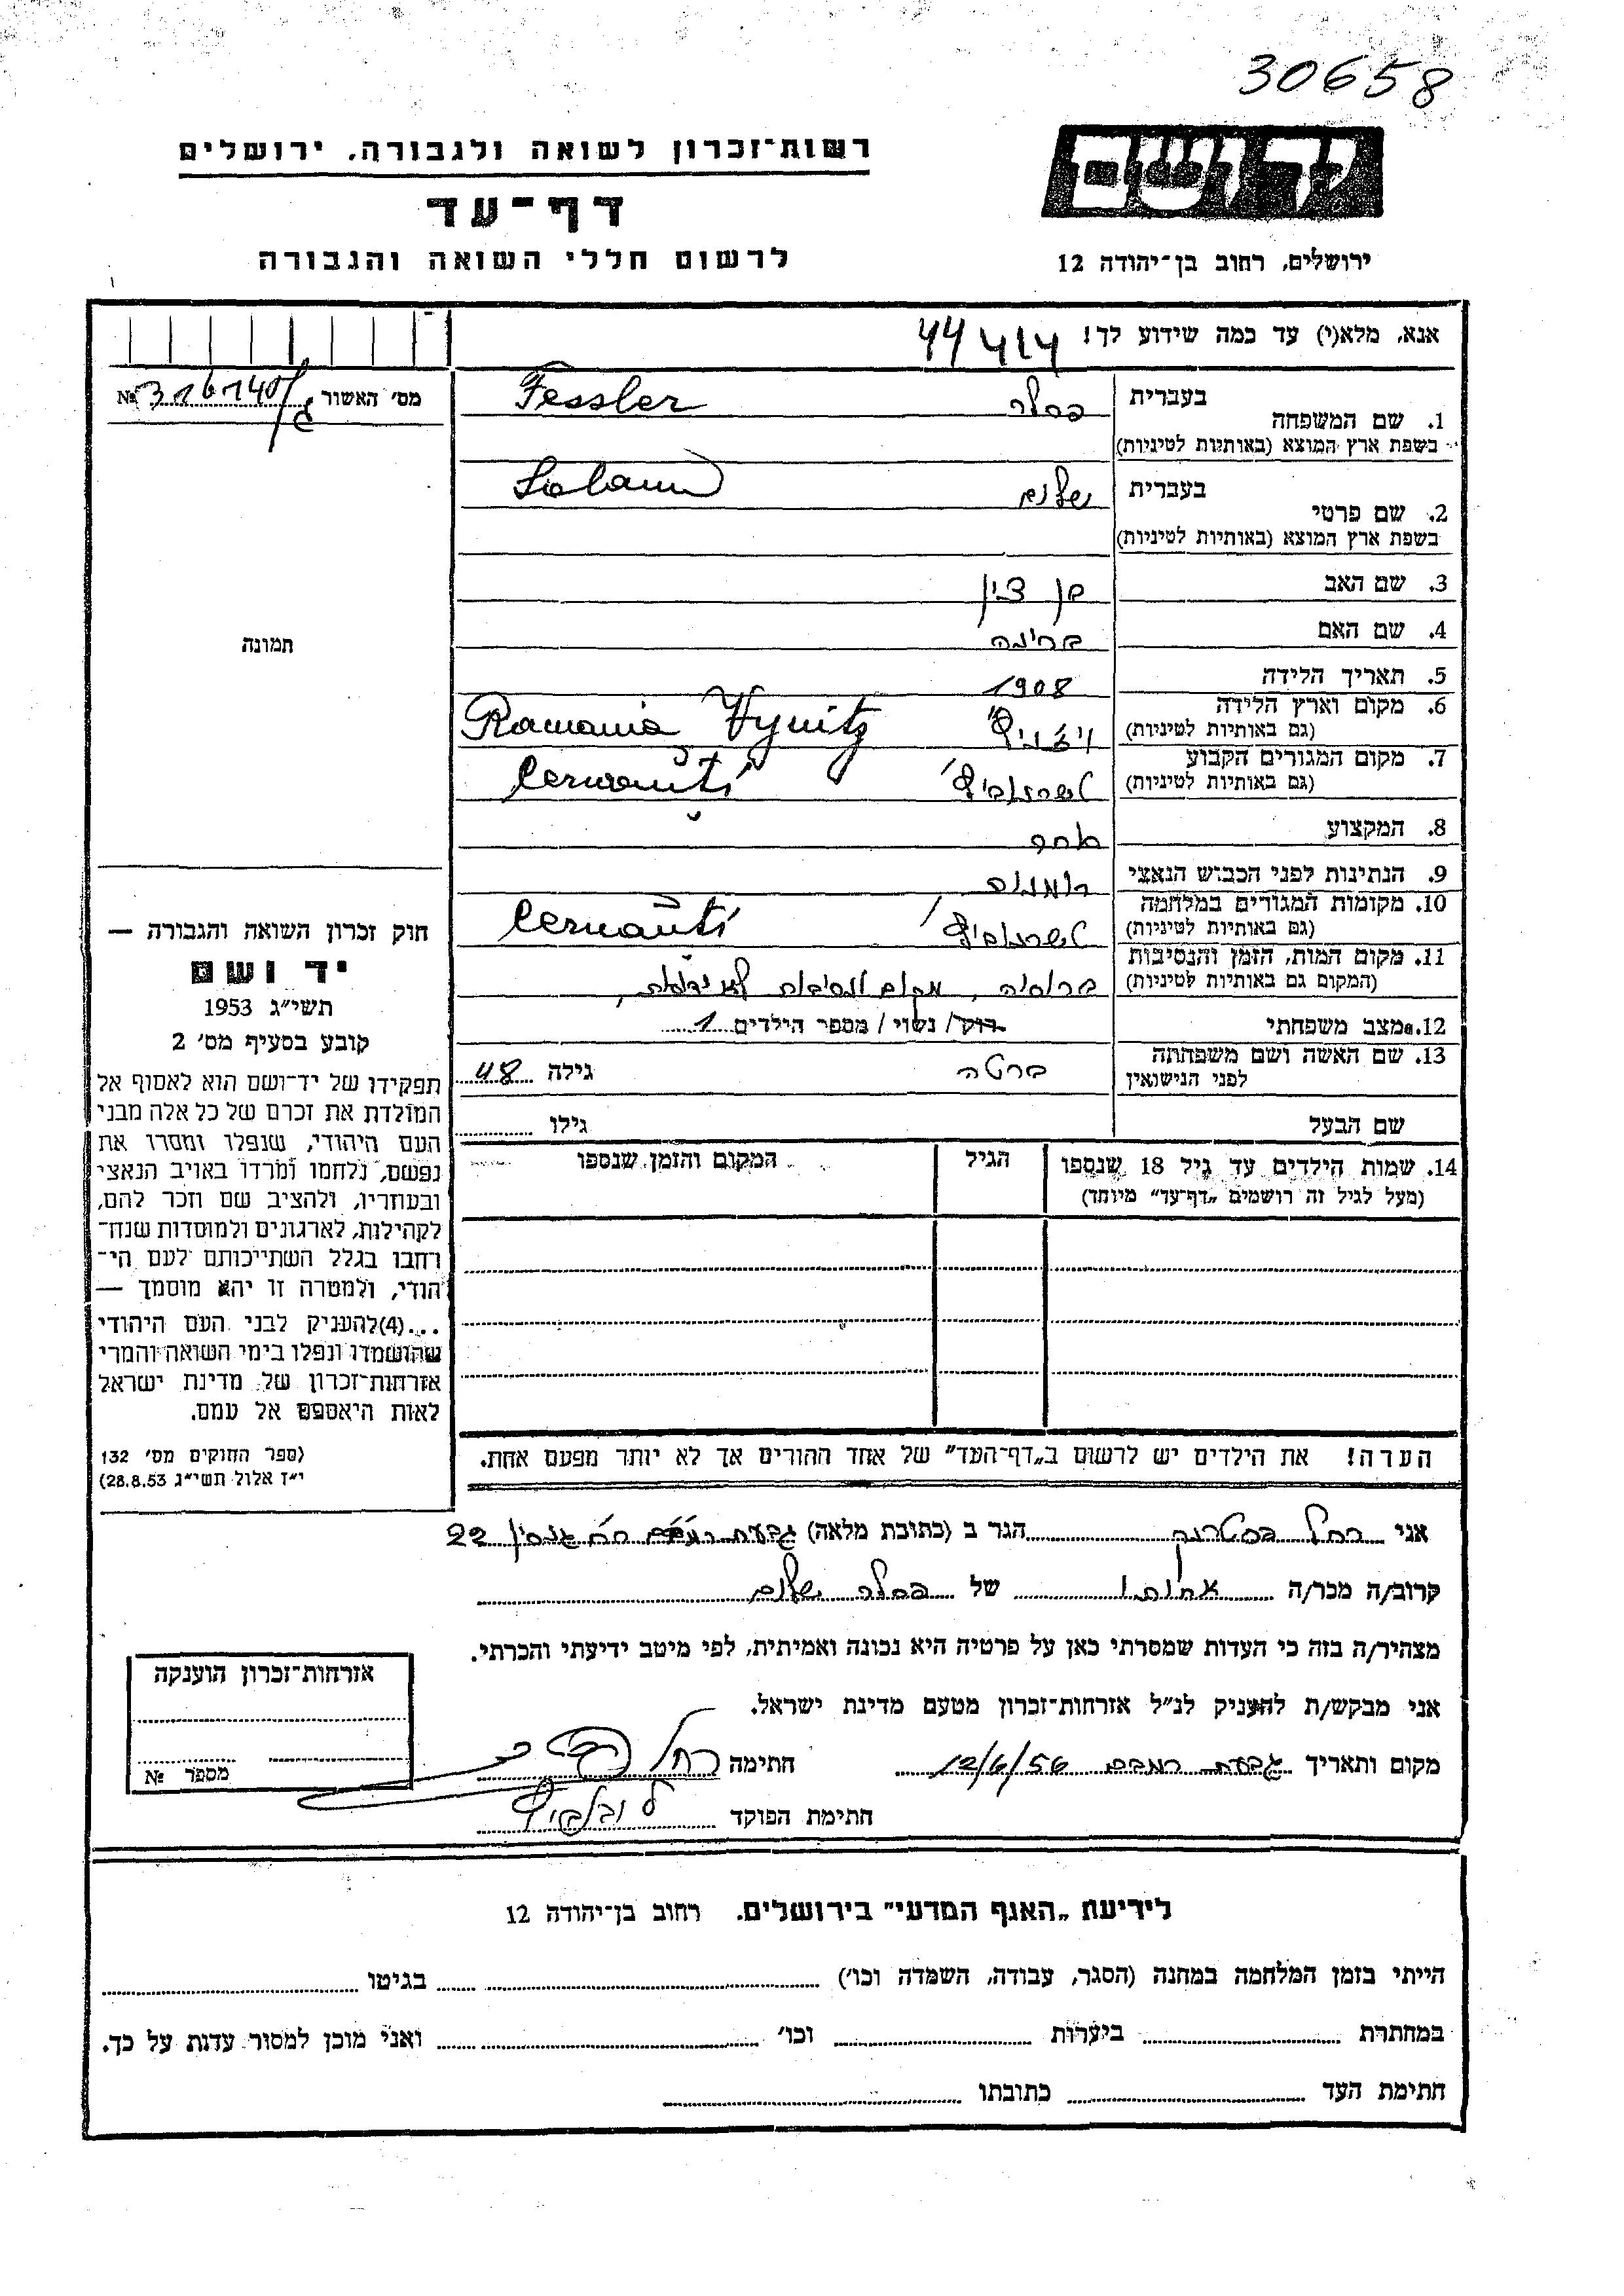 30658
יד ושם
רשות־זכרון לשואה ולגבורה, ירושלים
דף־עד
לרשום חללי השואה והגבורה
ירושלים, רחוב בן־יהודה 12
אנא, מלא(י) עד כמה שידוע לך!
מס׳ האשור № 316140/
1. שם המשפחה
בעברית פסלר Fessler
בשפת ארץ המוצא (באותיות לטיניות)
2. שם פרטי
בעברית שלום
בשפת ארץ המוצא (באותיות לטיניות)
3. שם האב בן ציון
4. שם האם
5. תאריך הלידה 1908
6. מקום וארץ הלידה
(גם באותיות לטיניות) ויזניץ Romania
7. מקום המגורים הקבוע
(גם באותיות לטיניות) Cernăuti
8. המקצוע
9. הנתינות לפני הכבוש הנאצי
10. מקומות המגורים במלחמה
(גם באותיות לטיניות) Cernăuti
11. מקום המות, הזמן והנסיבות
(המקום גם באותיות לטיניות) ברוסיה, מקום ונסיבות לא ידועות,
12. מצב משפחתי רוק/ נשוי / מספר הילדים 1
13. שם האשה ושם משפחתה
לפני הנישואין ברטה גילה 48
שם הבעל גילו
14. שמות הילדים עד גיל 18 שנספו
(מעל לגיל זה רושמים „דף־עד״ מיוחד)
הגיל
המקום והזמן שנספו
הערה! את הילדים יש לרשום ב„דף־העד״ של אחד ההורים אך לא יותר מפעם אחת.
תמונה
חוק זכרון השואה והגבורה —
יד ושם
תשי״ג 1953
קובע בסעיף מס׳ 2
תפקידו של יד־ושם הוא לאסוף אל
המולדת את זכרם של כל אלה מבני
העם היהודי, שנפלו ומסרו את
נפשם, נלחמו ומרדו באויב הנאצי
ובעוזריו, ולהציב שם וזכר להם,
לקהילות, לארגונים ולמוסדות שנח־
רבו בגלל השתייכותם לעם הי־
הודי, ולמטרה זו יהא מוסמך —
...(4)להעניק לבני העם היהודי
שהושמדו ונפלו בימי השואה והמרי
אזרחות־זכרון של מדינת ישראל
לאות היאספם אל עמם.
(ספר החוקים מס׳ 132
י״ז אלול תשי״ג 28.8.53)
אני רחל הגר ב (כתובת מלאה) גבעת רמב״ם 22
קרוב/ה מכר/ה אחותו של פסלר שלום
מצהיר/ה בזה כי העדות שמסרתי כאן על פרטיה היא נכונה ואמיתית, לפי מיטב ידיעתי והכרתי.
אני מבקש/ת להעניק לנ״ל אזרחות־זכרון מטעם מדינת ישראל.
מקום ותאריך גבעת רמבם 12/6/56 חתימה רחל
חתימת הפוקד
אזרחות־זכרון הוענקה
מספר №
לידיעת „האגף המדעי״ בירושלים. רחוב בן־יהודה 12
הייתי בזמן המלחמה במחנה (הסגר, עבודה, השמדה וכו׳) בגיטו
במחתרת ביערות וכו׳ ואני מוכן למסור עדות על כך.
חתימת העד כתובתו